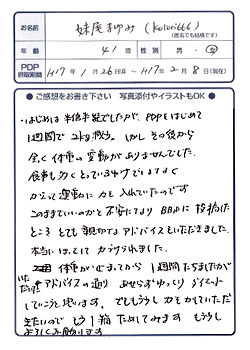 お名前 妹尾まゆみ(kotori666)
(匿名でも結構です)
年齢 41才 性別 男・女
PDP摂取期間 H17年1月26日頃~H17年2月8日(現在)
● ご感想をお書き下さい 写真添付やイラストもOK ●
・はじめは半信半疑でしたが、PDPをはじめて
1週間で2kg減少。しかしその後から
全く体重の変動がありませんでした。
食事も力をとっているわけでもなく
かえって運動に力を入れていたのです
このままでいいのかと不安になりBBSに投稿した
ところとても親切なアドバイスをいただきました。
本当にはげまされ
体重が止まってから1週間たちましたが
いただいたアドバイスの通りあせらずゆっくりダイエット
していこうと思います。でももう少し
きたいのでもう1箱ためしてみます もう少し
よろしくお願いします